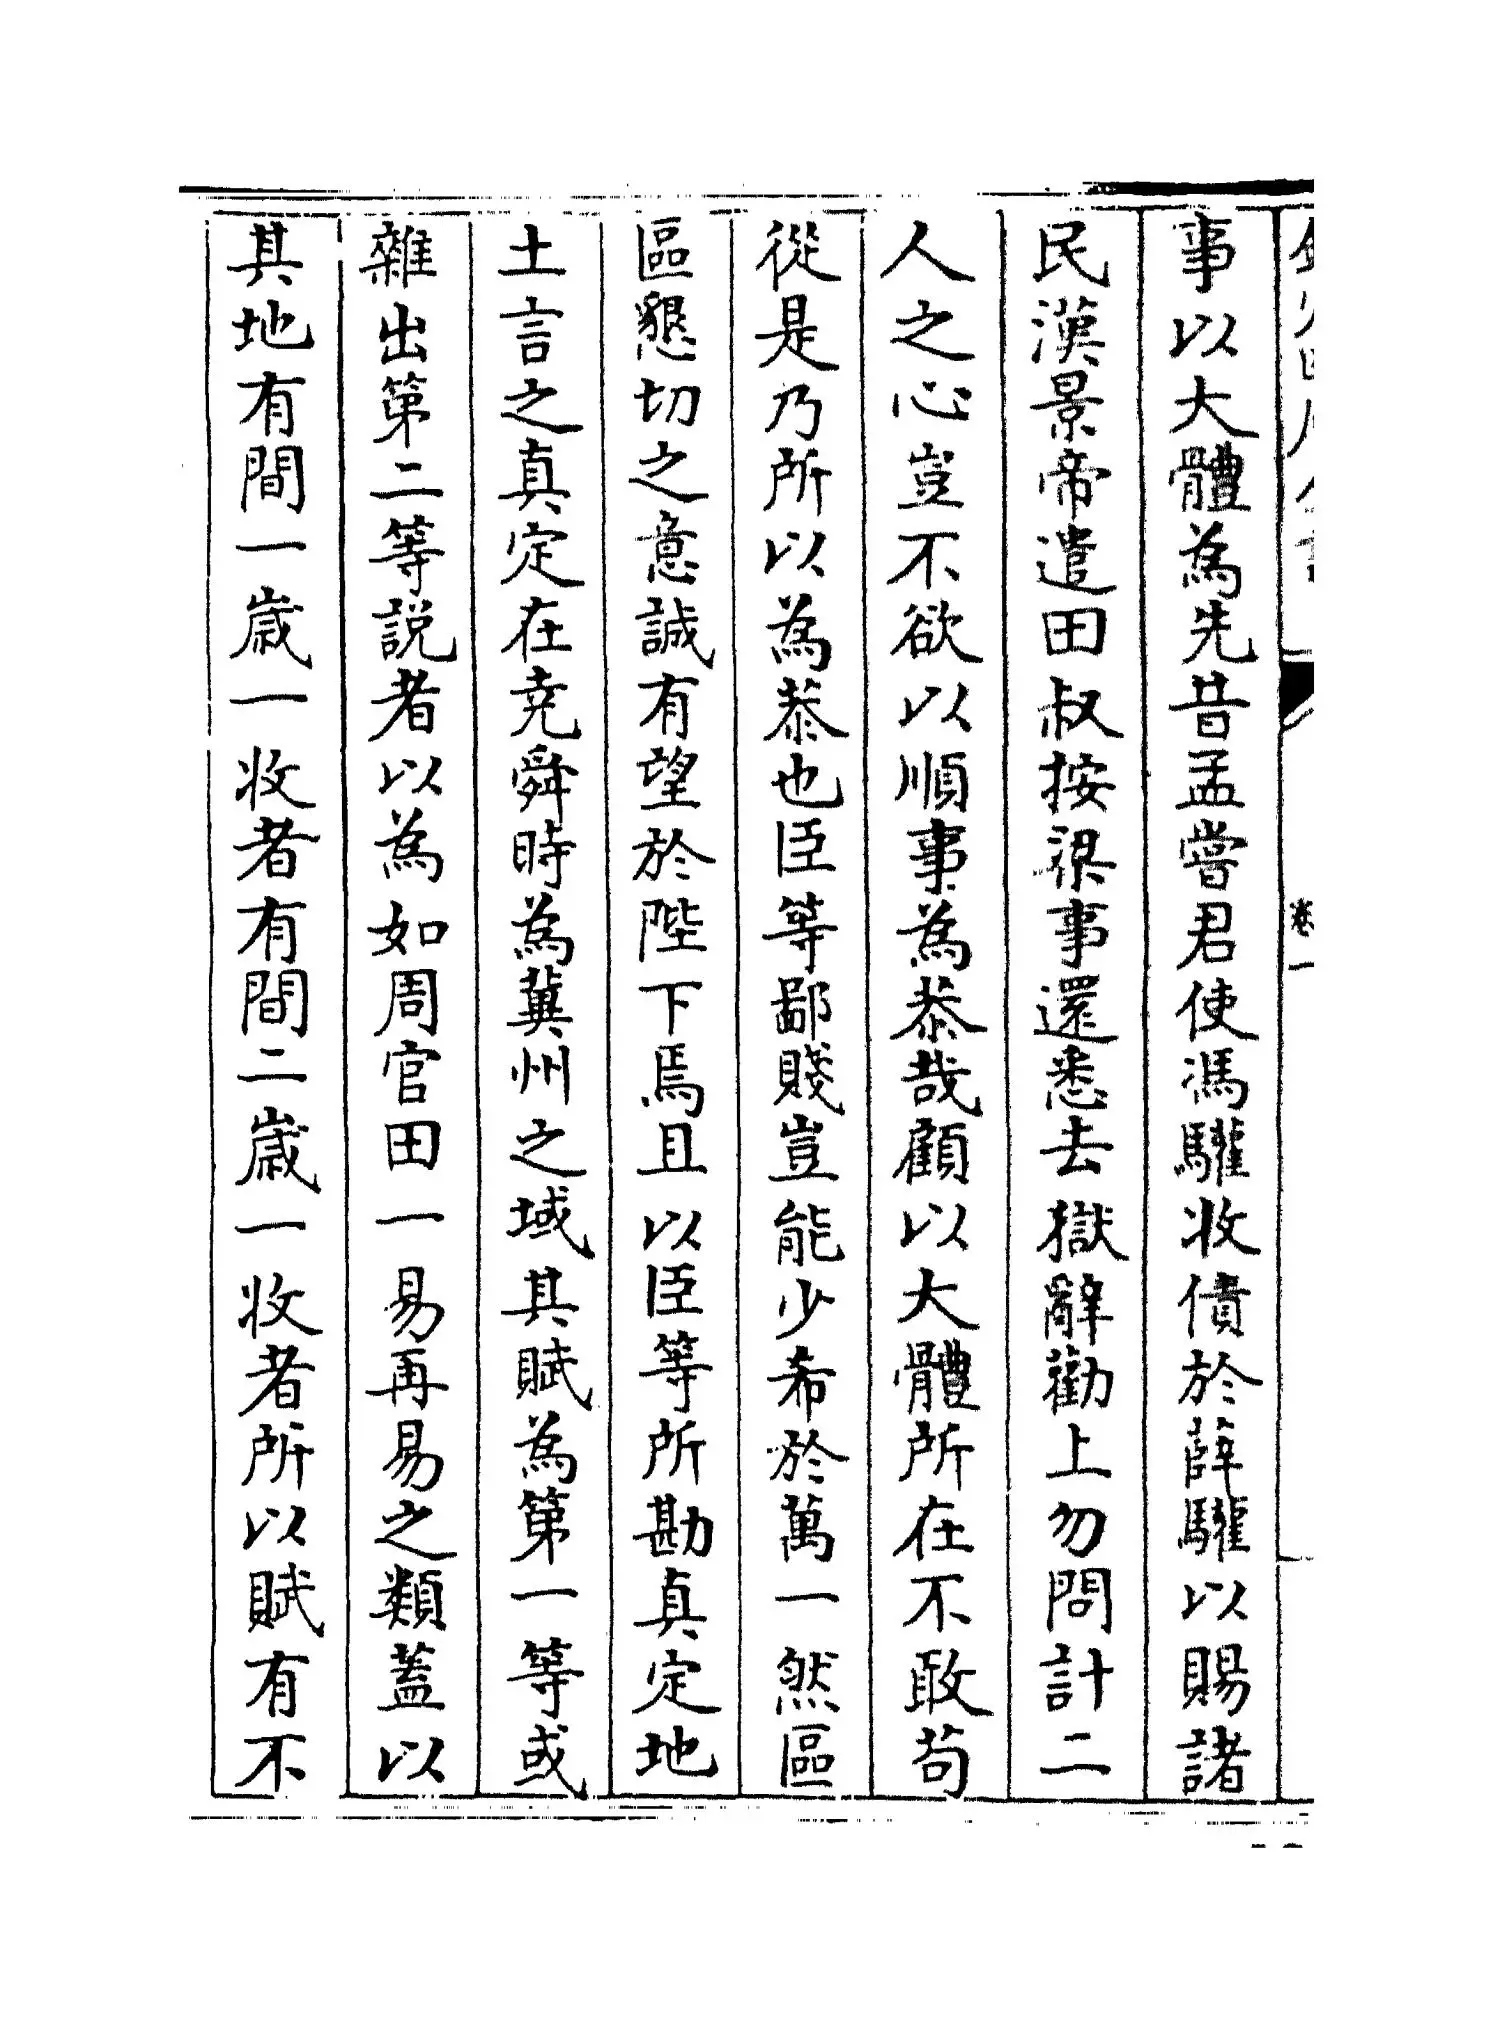 卷一
事以大體為先昔孟嘗君使馮驩收債於薛驩以賜諸
民漢景帝遣田叔按梁事還悉去獄辭勸上勿問計二
人之心豈不欲以順事為恭哉顧以大體所在不敢苟
從是乃所以為恭也臣等鄙賤豈能少希於萬一然區
區懇切之意誠有望於陛下焉且以臣等所勘真定地
土言之真定在堯舜時為冀州之域其賦為第一等或
雜出第二等說者以為如周官田一易再易之類蓋以
其地有間一歲一收者有間二歲一收者所以賦有不